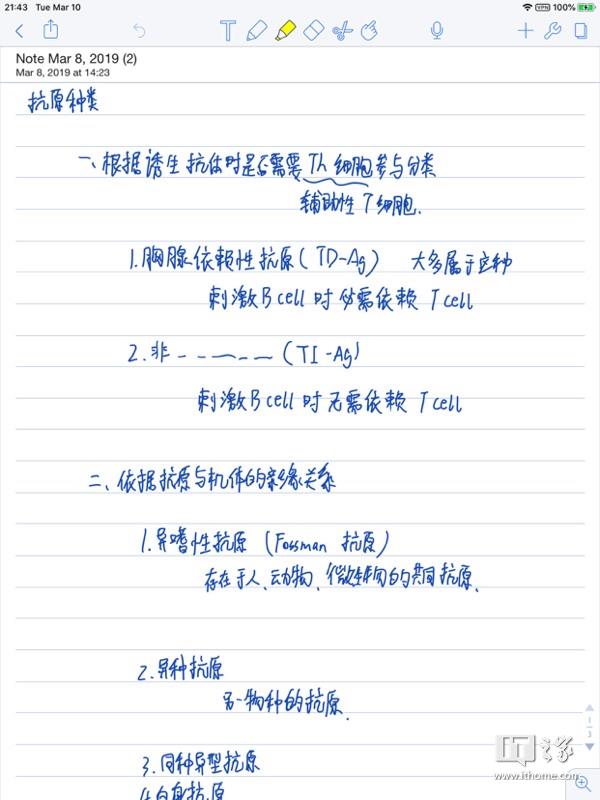 21:43 Tue Mar 10 VPN 100%
Note Mar 8, 2019 (2)
Mar 8, 2019 at 14:23
抗原种类
一、根据诱生抗体时是否需要Th细胞参与分类
辅助性T细胞.
1.胸腺依赖性抗原(TD-Ag) 大多属于这种
刺激B cell时必需依赖 T cell
2.非 ----- (TI-Ag)
刺激B cell时无需依赖 T cell
二、依据抗原与机体的亲缘关系
1.异嗜性抗原 (Fossman 抗原)
存在于人、动物、微生物的共同抗原.
2.异种抗原
另一物种的抗原.
3.同种异型抗原
4.自身抗原
1
3
IT之家
www.ithome.com